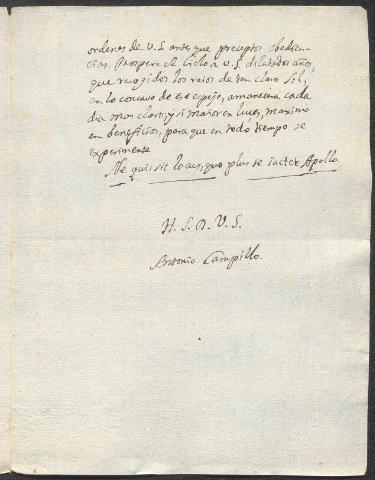 ordenes de V.S. antes que preceptos obedien-
cias. Prospere el Cielo a V.S. dilatados años,
que recogidos los raios de tan claro Sol,
en lo concavo de ese espejo, amanecerà cada
dia mas claro; y si maior en luces, maximo
en beneficios, para que en todo tiempo se
experimente
Ne quis sit locus, quo plus se iactet Apollo.
H. S. D. V. S.
Antonio Campillo.